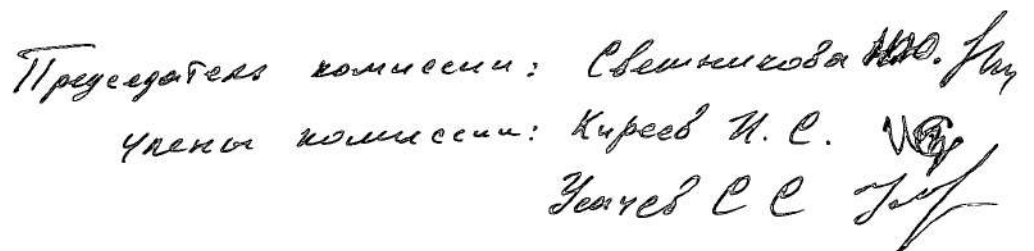 Председатель комиссии: Свешникова Ю.
члены комиссии: Киреев И. С.
Усачев С С